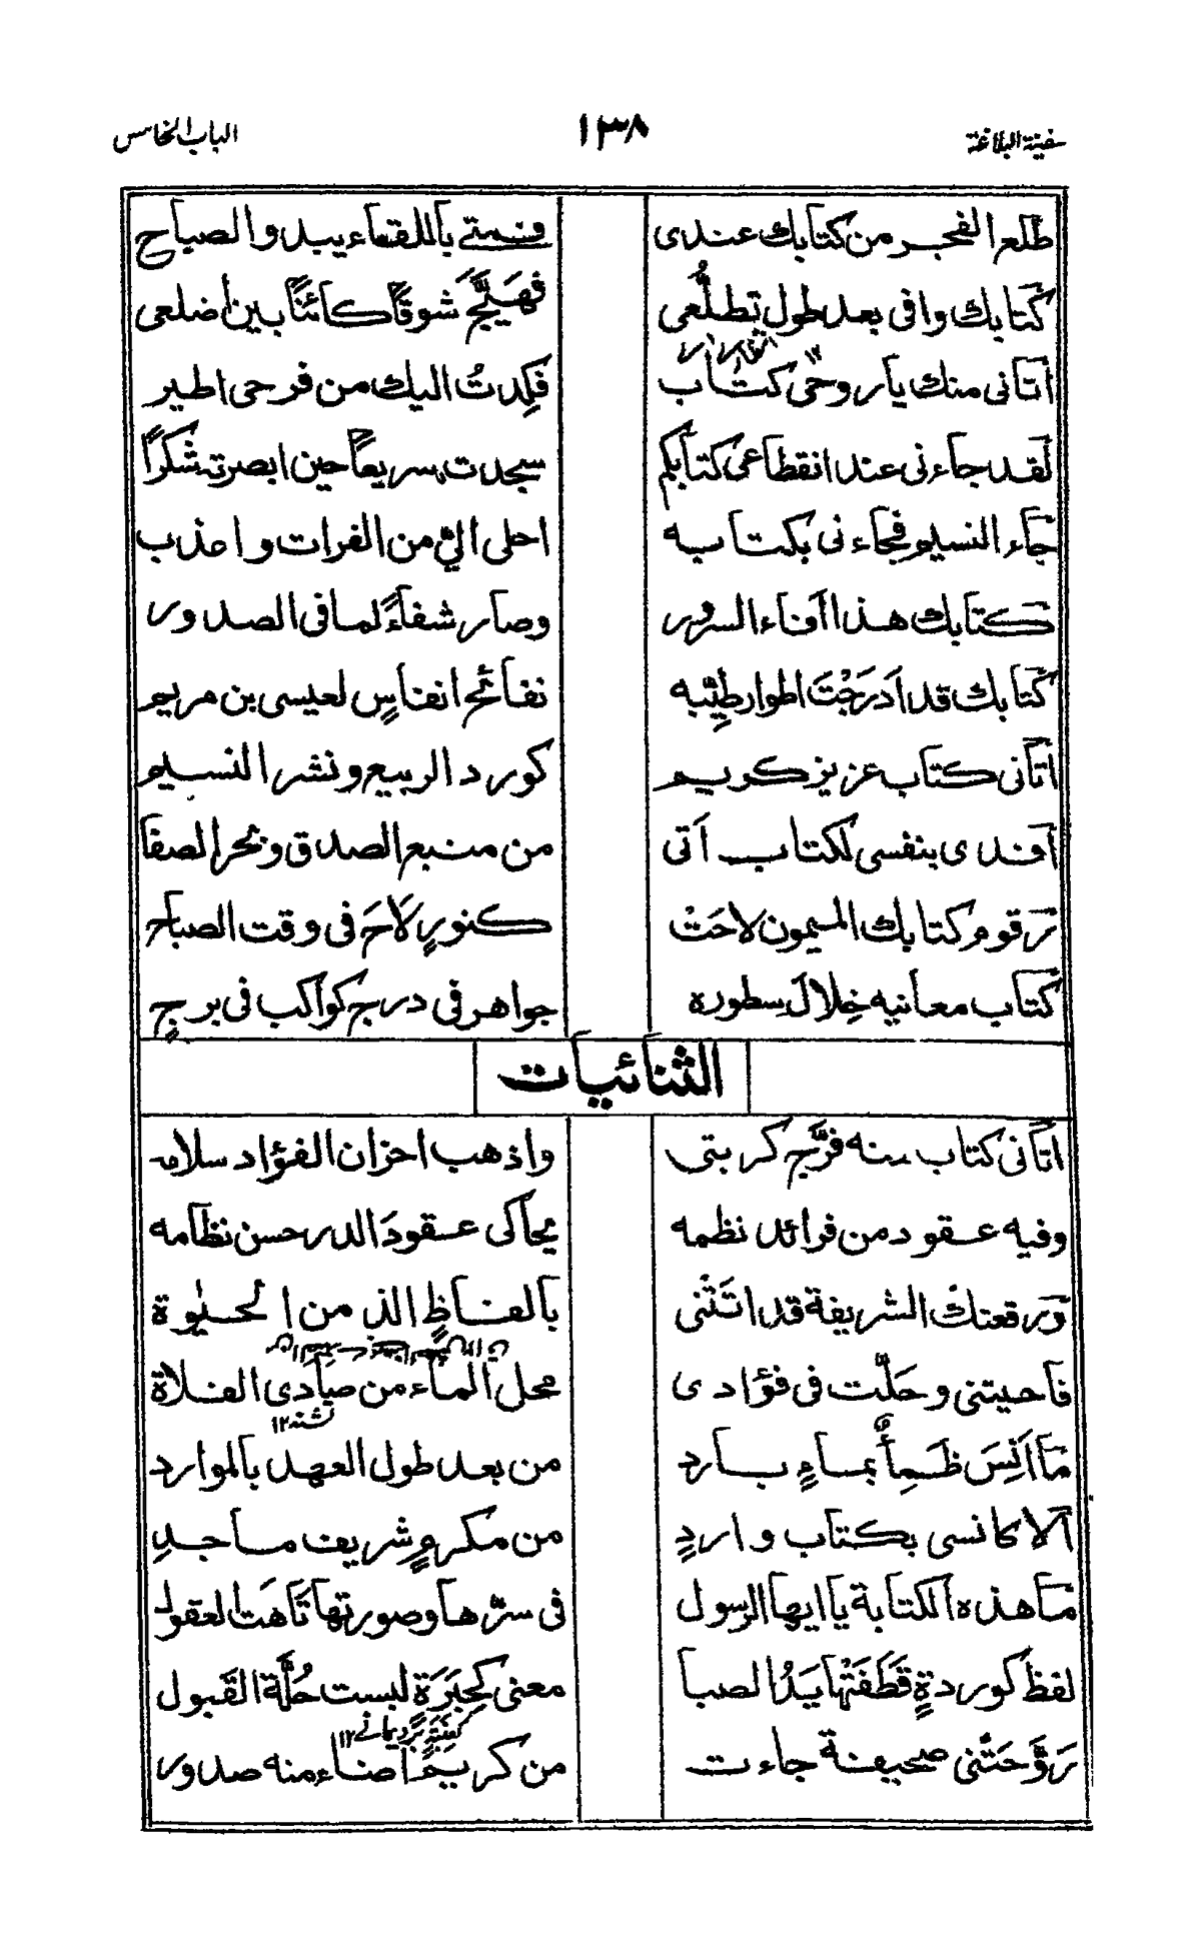 سفينة البلاغة ١٣٨ الباب الخامس
طلع الفجر من كتابك عندى فمتى باللقاء يبدو الصباح
كتابك وافى بعد طول تطلُّعى فهَيَّجَ شوقاً كائناً بين أضلعى
اتانى منك ياروحى كتاب فكِدتُ اليك من فرحى اطير
لقد جاءنى عند انقطاعى كتابكم سجدت سريعاً حين ابصرته شكراً
جاء النسيم فجاءنى بكتابه احلى الىّ من الفرات واعذب
كتابك هذا افناء السرور وصار شفاءً لما فى الصدور
كتابك قد اَدرَجْتَ اطوار طيِّبه نفائح انفاسٍ لعيسى بن مريم
اتانى كتاب عزيز كريم كورد الربيع ونشر النسيم
افدى بنفسى لكتاب اَتى من منبع الصدق وبحر الصفا
رقوم كتابك الميمون لاحَتْ كنورٍ لاَحَ فى وقت الصباح
كتاب معانيه خِلالَ سطوره جواهر فى درج كواكب فى برجٍ
الثنائيات
اتانى كتاب منه فرَّج كربتى واذهب احزان الفؤاد سلامه
وفيه عقود من فرائد نظمه يحاكى عقودَ الدر حسن نظامه
ورقعتك الشريفة قد اتَتْنى بالفاظٍ الذ من الحيٰوة
فاحيتنى وحلَّت فى فؤادى محل الماء من صادى الفلاة
تشنه١٢
ما اَنِسَ ظَمِأٌ بماءٍ بارد من بعد طول العهد بالموارد
الا كانسى بكتاب واردِ من مكرمٍ شريف ماجدِ
ما هذه الكتابة يا ايها الرسول فى سرّها وصورتها تاهَت العقول
لفظ كوردةٍ قَطَفَتْها يَدُ الصبا معنى كحِبَرَةٍ لبست حُلَّة القَبول
رَوَّحَتْنى صحيفة جاءت من كريمٍ اضاء منه صدور